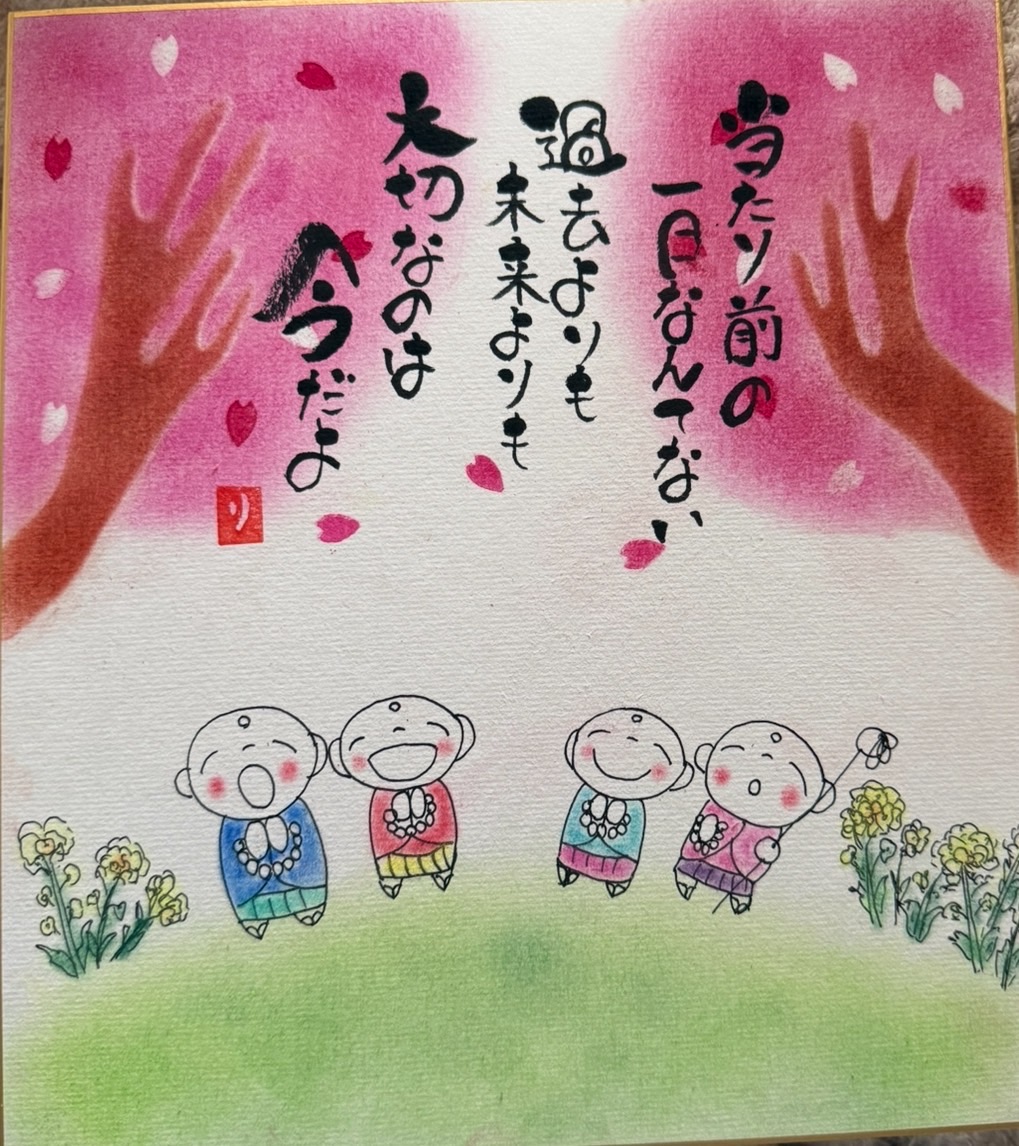 当たり前の
一日なんてない
過去よりも
未来よりも
大切なのは
今だよ
り